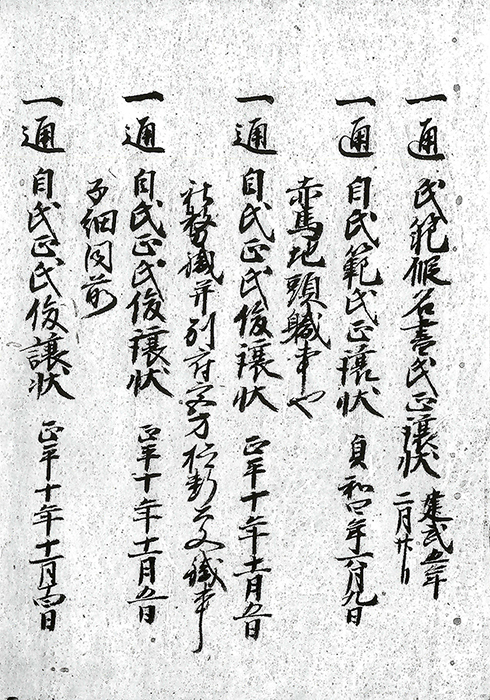 一通 氏範仮名書氏正譲状 建武五年二月廿日
一通 自氏範氏正譲状 貞和四年六月九日
赤馬地頭職事也
一通 自氏正氏俊譲状 正平十年十一月五日
社務職并別府方公文職事
一通 自氏正氏俊譲状 正平十年十一月五日
子細同前
一通 自氏正氏俊譲状 正平十年十一月十四日